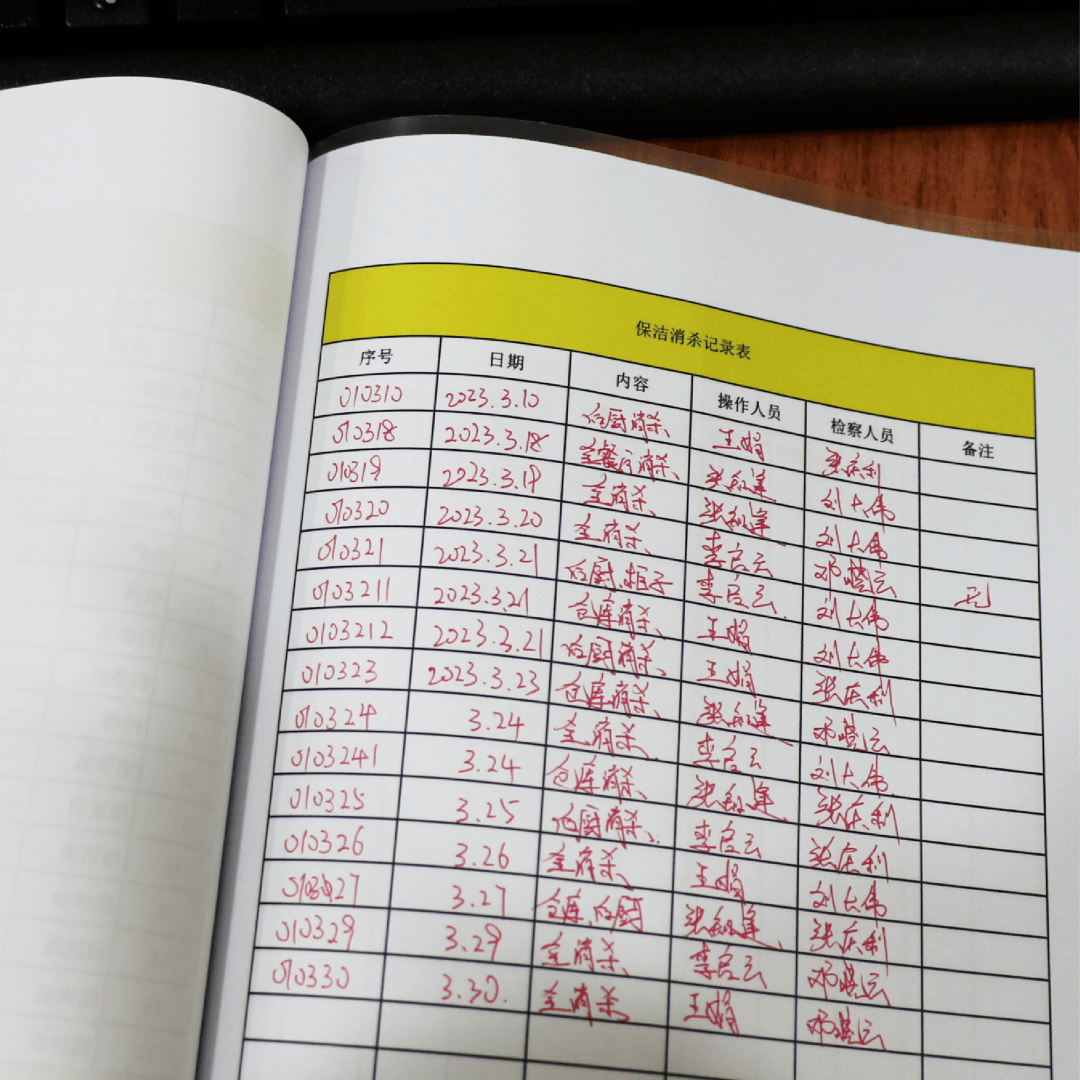 保洁消杀记录表
序号 日期 内容 操作人员 检察人员 备注
010310 2023.3.10 后厨消杀 王娟 张庆利
010318 2023.3.18 全餐厅消杀 刘大伟
010319 2023.3.19 全消杀 刘大伟
010320 2023.3.20 全消杀 李启云 邓慧云
010321 2023.3.21 后厨.柜子 李启云 刘大伟 无
0103211 2023.3.21 仓库消杀 王娟 刘大伟
0103212 2023.3.21 后厨消杀 王娟 张庆利
010323 2023.3.23 仓库消杀 邓慧云
010324 3.24 全消杀 李启云 刘大伟
0103241 3.24 仓库消杀 张庆利
010325 3.25 后厨消杀 李启云 张庆利
010326 3.26 全消杀 王娟 刘大伟
010327 3.27 仓库.后厨 张庆利
010329 3.29 全消杀 李启云 邓慧云
010330 3.30. 全消杀 王娟 邓慧云